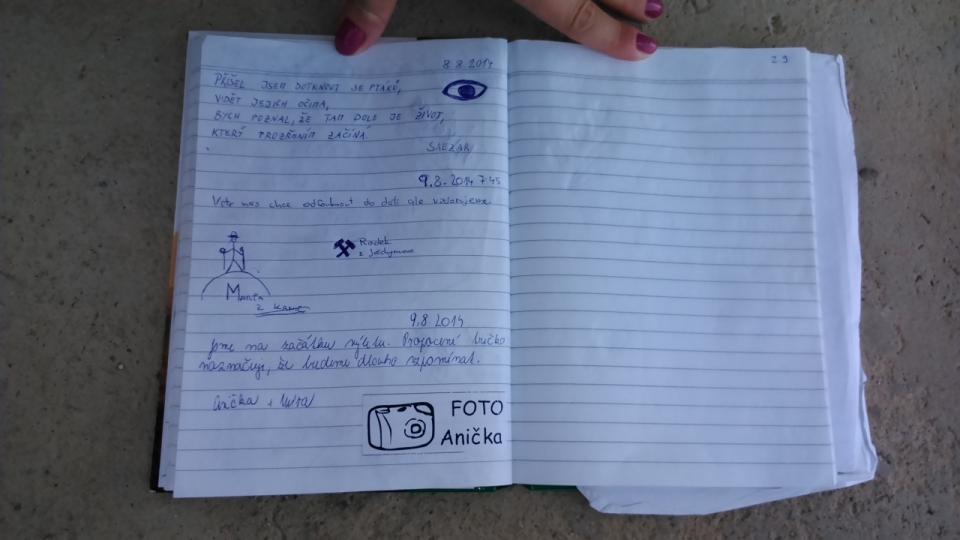 8.8.2014
29
PŘIŠEL JSEM DOTKNOUT SE PTÁKŮ,
VIDĚT JEJICH OČIMA,
BYCH POZNAL, ŽE TAM DOLE JE ŽIVOT,
KTERÝ PROZŘENÍM ZAČÍNÁ.
9.8.2014 7:45
Vítr nás chce odfouknout do dáli ale vzdorujeme
Radek
z
Manta
z
9.8.2014
jsme na začátku výletu. Propocení tričko
naznačuje, že budeme dlouho vzpomínat.
Anička +
FOTO
Anička